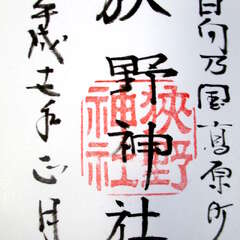 日向乃国高原町
狭野神社
狭野神社
平成十七年正月